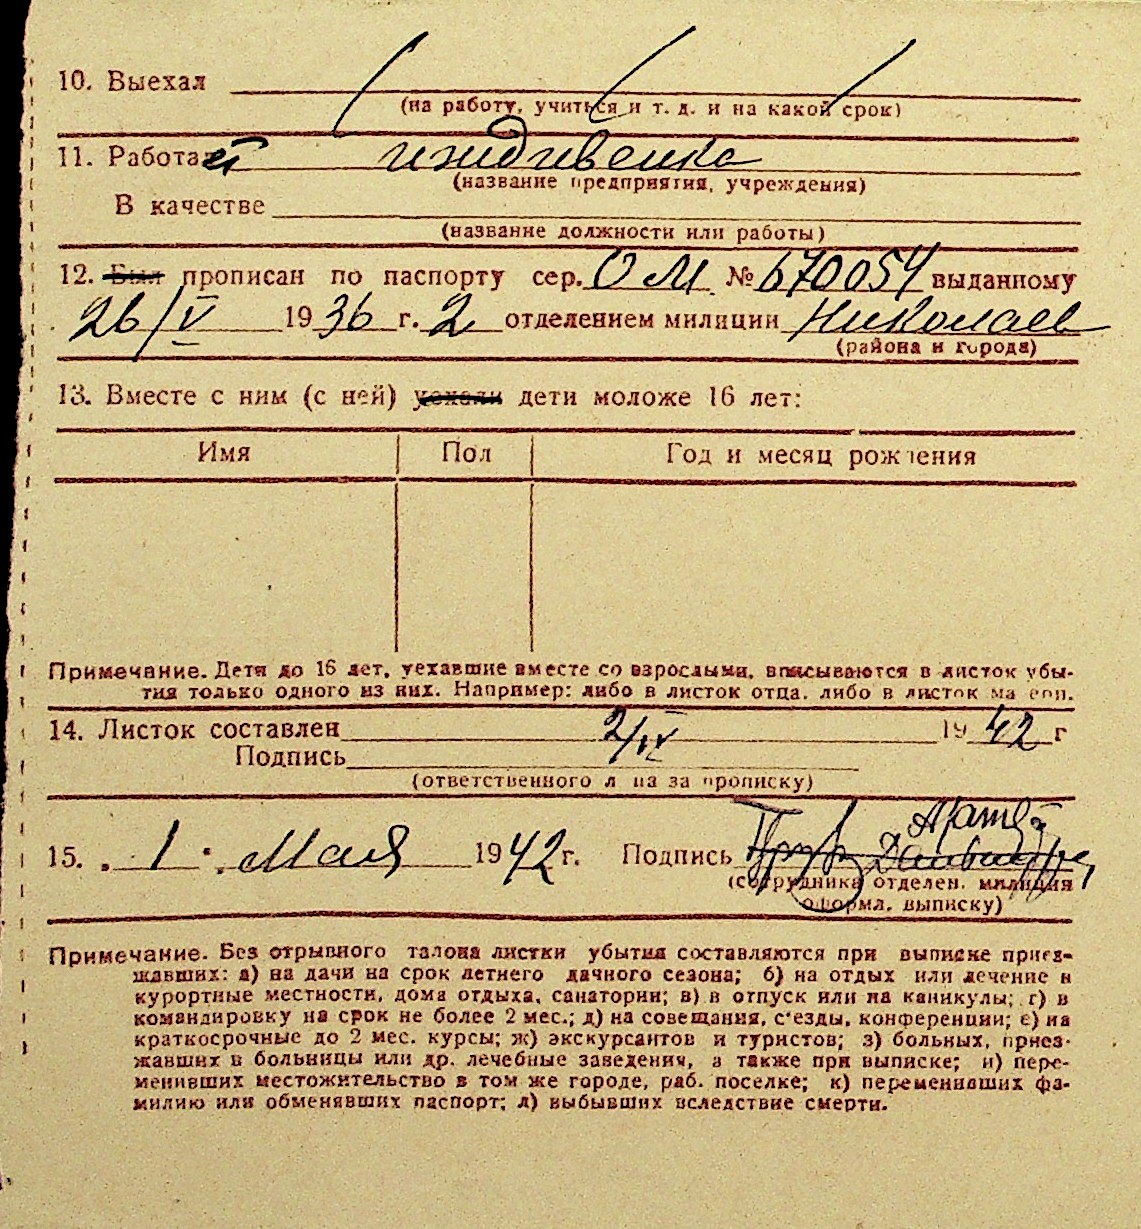 10. Выехал
(на работу, учиться и т. д. и на какой срок)
11. Работает иждивенка
(название предприятия, учреждения)
В качестве
(название должности или работы)
12. Был прописан по паспорту сер. ОМ № 670054 выданному
26/V 1936 г. 2 отделением милиции Николаев
(района и города)
13. Вместе с ним (с ней) уехали дети моложе 16 лет:
Имя Пол Год и месяц рождения
Примечание. Дети до 16 лет, уехавшие вместе со взрослыми, вписываются в листок убы-
тия только одного из них. Например: либо в листок отца, либо в листок матери.
14. Листок составлен 2/IV 1942 г
Подпись
(ответственного лица за прописку)
15. 1. Мая 1942 г. Подпись
(сотрудника отделен. милиция
оформл. выписку)
Примечание. Без отрывного талона листки убытия составляются при выписке приез-
жавших: а) на дачи на срок летнего дачного сезона; б) на отдых или лечение в
курортные местности, дома отдыха, санатории; в) в отпуск или на каникулы; г) в
командировку на срок не более 2 мес.; д) на совещания, с'езды, конференции; е) на
краткосрочные до 2 мес. курсы; ж) экскурсантов и туристов; з) больных, приез-
жавших в больницы или др. лечебные заведения, а также при выписке; и) пере-
менивших местожительство в том же городе, раб. поселке; к) переменивших фа-
милию или обменявших паспорт; л) выбывших вследствие смерти.